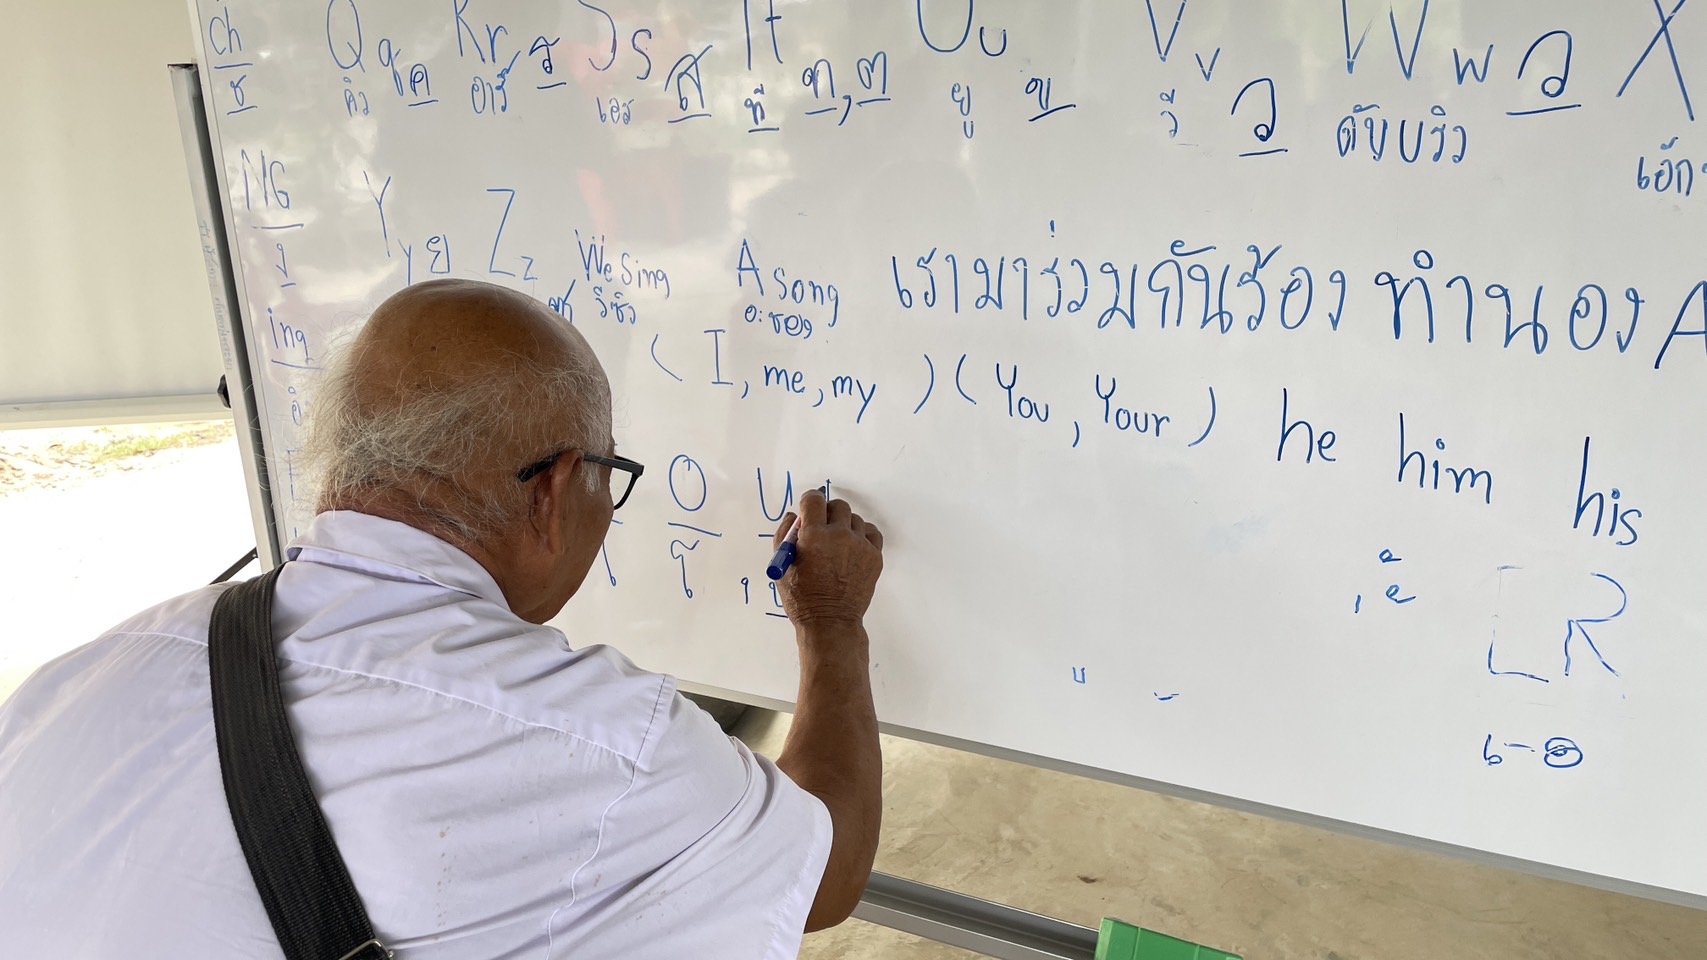 ch Qq Rr Ss Tt Uu Vv Ww X
ช คิว ค อาร์ ร เอส ส ที ท, ต ยู ย วี ว ดับบริว ว เอ็ก
NG Yy ย Zz We Sing A song เรามาร่วมกันร้อง ทำนอง A
ง วีซิง อะซอง
ing (I, me, my) (You, Your) he him his
O U
โ
LR